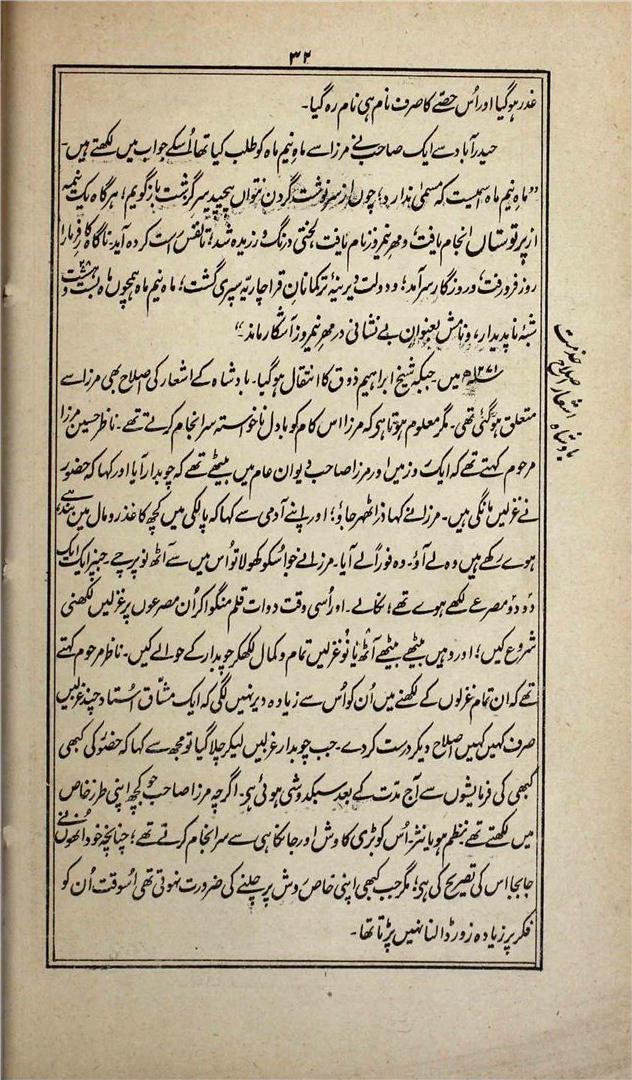 ۳۲
غدر ہوگیا اور اُس حصّے کا صرف نام ہی نام رہ گیا۔
حیدرآباد سے ایک صاحب نے مرزا سے ماہِ نیم ماہ کو طلب کیا تھا اُسکے جواب میں لکھتے ہیں۔
"ماہِ نیم ماہ اسمیست کہ مسمیٰ ندارد؛ چوں از سرنوشت گردن نتواں پیچید سرگزشت باز گویم؛ ہرگاہ یک نیمہ
از پرتوستاں انجام یافت، و مہرِ نیمروز نام یافت، لختی درنگ ورزیدہ شد؛ تا نفس راست کردہ آید۔ ناگاہ کارفرما را
روز فرو رفت، و روزگار سرآمد؛ و دولتِ دیرینۂ ترکمانانِ قراچاریہ سپری گشت؛ ماہ نیم ماہ ہمچوں ماہِ بست و ہشت
شبہ ناپدیدار، و نامش بعنوانِ بے نشانی در مہرِ نیمروز آشکار ماند۔"
۱۲۷۱ھ میں جبکہ شیخ ابراہیم ذوق کا انتقال ہوگیا۔ بادشاہ کے اشعار کی اصلاح بھی مرزا سے
متعلق ہوگئی تھی۔ مگر معلوم ہوتا ہی کہ مرزا اس کام کو بادلِ ناخواستہ سرانجام کرتے تھے۔ ناظر حسین مرزا
مرحوم کہتے تھے کہ ایک روز میں اور مرزا صاحب دیوان عام میں بیٹھے تھے کہ چوبدار آیا اور کہا کہ حضور
نے غزلیں مانگی ہیں۔ مرزا نے کہا ذرا ٹھہر جاؤ؛ اور اپنے آدمی سے کہا کہ پالکی میں کچھ کاغذ رومال میں بندھے
ہوے رکھے ہیں وہ لے آؤ۔ وہ فوراً لے آیا۔ مرزا نے جو اُسکو کھولا تو اُس میں سے آٹھ نو پرچے۔ جنپر ایک ایک
دو دو مصرعے لکھے ہوے تھے؛ نکالے۔ اور اُسی وقت دوات قلم منگوا کر اُن مصرعوں پر غزلیں لکھنی
شروع کیں؛ اور وہیں بیٹھے بیٹھے آٹھ یا نو غزلیں تمام و کمال لکھکر چوبدار کے حوالے کیں۔ ناظر مرحوم کہتے
تھے کہ ان تمام غزلوں کے لکھنے میں اُن کو اُس سے زیادہ دیر نہیں لگی کہ ایک مشّاق اُستاد چند غزلیں
صرف کہیں کہیں اصلاح دیکر درست کردے۔ جب چوبدار غزلیں لیکر چلا گیا تو مجھ سے کہا کہ حضور کی کبھی
کبھی کی فرمایشوں سے آج مدّت کے بعد سبکدوشی ہوئی ہی۔ اگرچہ مرزا صاحب جو کچھ اپنی طرزِ خاص
میں لکھتے تھے نظم ہو یا نثر۔ اُس کو بڑی کاوش اور جانکاہی سے سرانجام کرتے تھے؛ چنانچہ خود اُنھوں نے
جابجا اس کی تصریح کی ہی؛ مگر جب کبھی اپنی خاص روش پر چلنے کی ضرورت نہوتی تھی اُسوقت اُن کو
فکر پر زیادہ زور ڈالنا نہیں پڑتا تھا۔
خدمتِ
اصلاحِ اشعارِ
بادشاہ